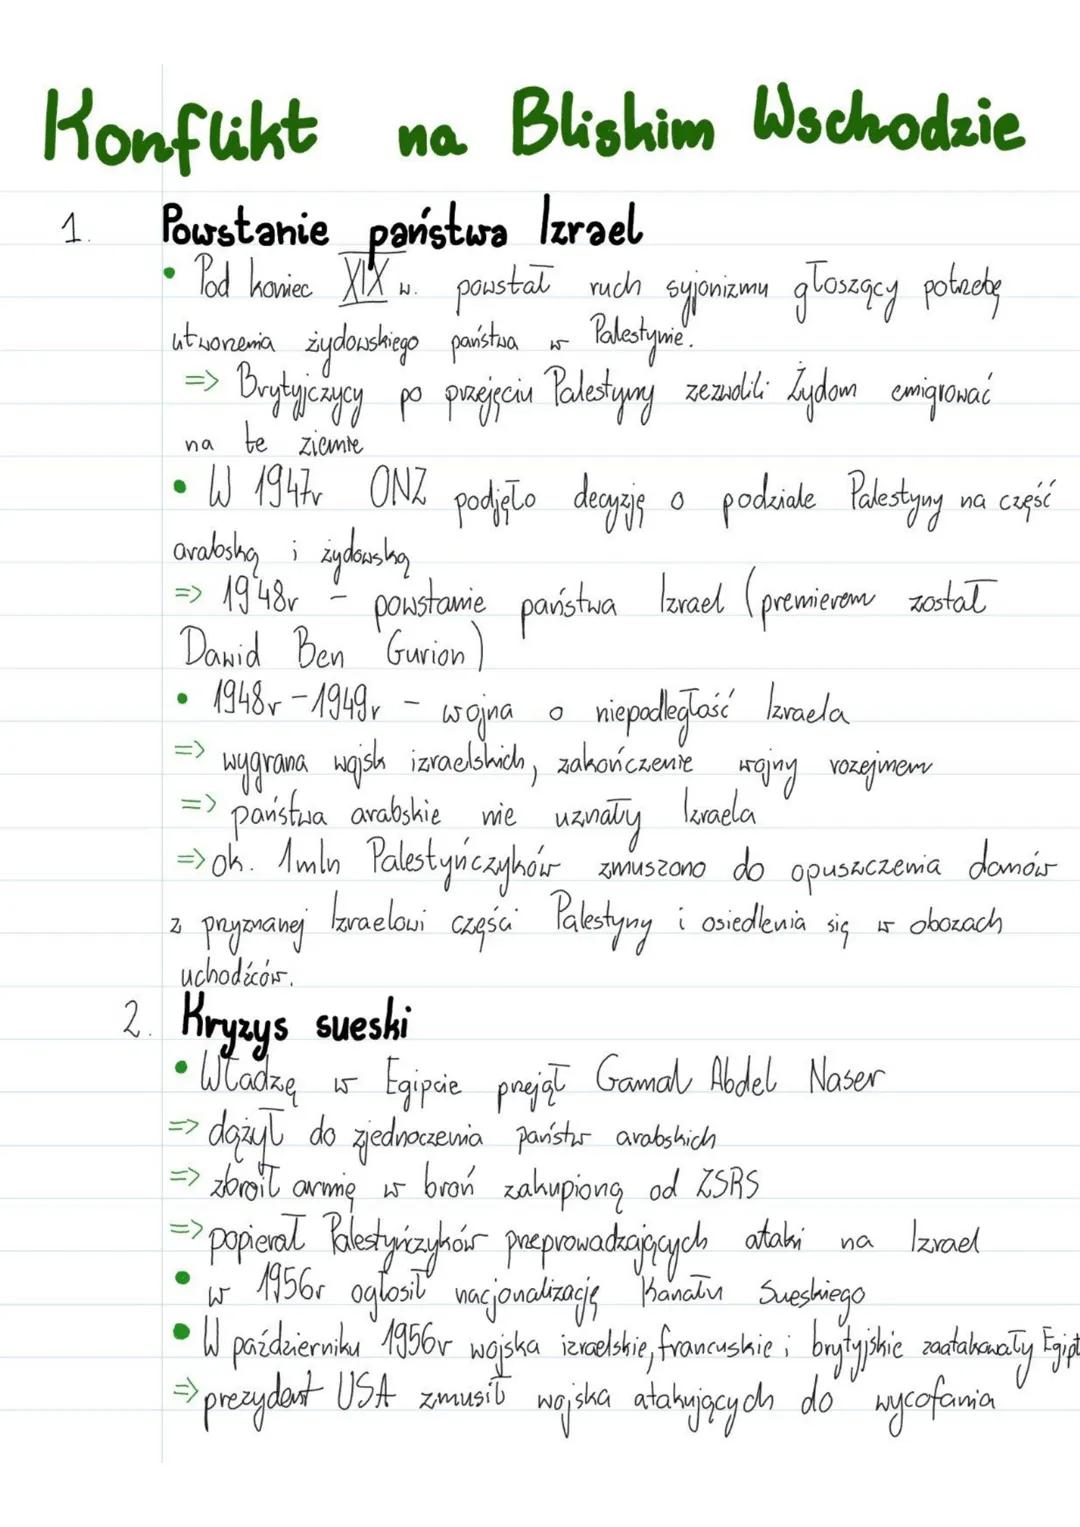 Konflikt na Bliskim Wschodzie
1. Powstanie państwa Izrael
• Pod koniec XIX w. powstał ruch syjonizmu głoszący potrzebę
utworzenia żydowskiego państwa w Palestynie.
=> Brytyjczycy po przejęciu Palestyny zezwolili Żydom emigrować
na te ziemie
• W 1947r ONZ podjęło decyzję o podziale Palestyny na część
arabską i żydowską
=> 1948r - powstanie państwa Izrael (premierem został
Dawid Ben Gurion)
• 1948r - 1949r - wojna o niepodległość Izraela
=> wygrana wojsk izraelskich, zakończenie wojny rozejmem
=> państwa arabskie nie uznały Izraela
=> ok. 1mln Palestyńczyków zmuszono do opuszczenia domów
z przyznanej Izraelowi części Palestyny i osiedlenia się w obozach
uchodźców.
2. Kryzys sueski
• Władzę w Egipcie przejął Gamal Abdel Naser
=> dążył do zjednoczenia państw arabskich
=> zbroił armię w broń zakupioną od ZSRS
=> popierał Palestyńczyków przeprowadzających ataki na Izrael
• w 1956r ogłosił nacjonalizację Kanału Sueskiego
• W październiku 1956r wojska izraelskie, francuskie i brytyjskie zaatakowały Egipt
=> prezydent USA zmusił wojska atakujących do wycofania